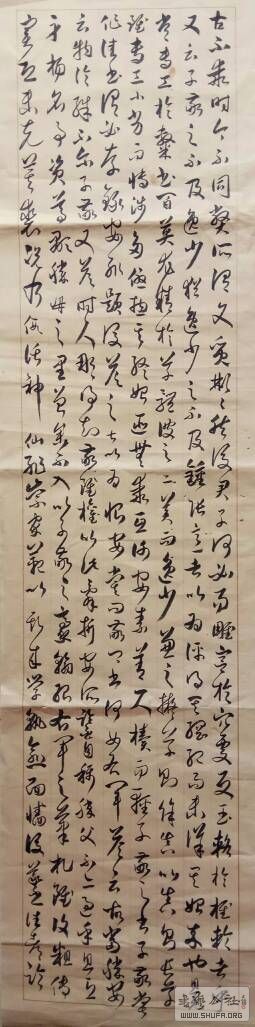 古不乖時今不同弊所謂文質彬彬然後君子何必易雕宮於穴處反玉輅於椎輪者乎
又云子敬之不及逸少猶逸少之不及鍾張意者以為評得其綱紀而未詳其始卒也且元
常專工於隸書百英尤精於草體彼之二美而逸少兼之擬草則餘真比真則長草
雖專工小劣而博涉多優揔其終始匪無乖互謝安素善尺櫝而輕子敬之書子敬嘗
作佳書與之謂必存錄安輒題後答之甚以為恨安嘗問敬卿書何如右軍答云故當勝安
云物論殊不爾子敬又答時人那得知敬雖權以此辭折安所鑒自稱勝父不亦過乎且立
身揚名事資尊顯勝母之里曾參不入以子敬之豪翰紹右軍之筆札雖復粗傳
實恐未克箕裘況乃假託神仙恥崇家範以斯成學孰愈面牆後羲之往都臨
WWW.SHUFA.ORG